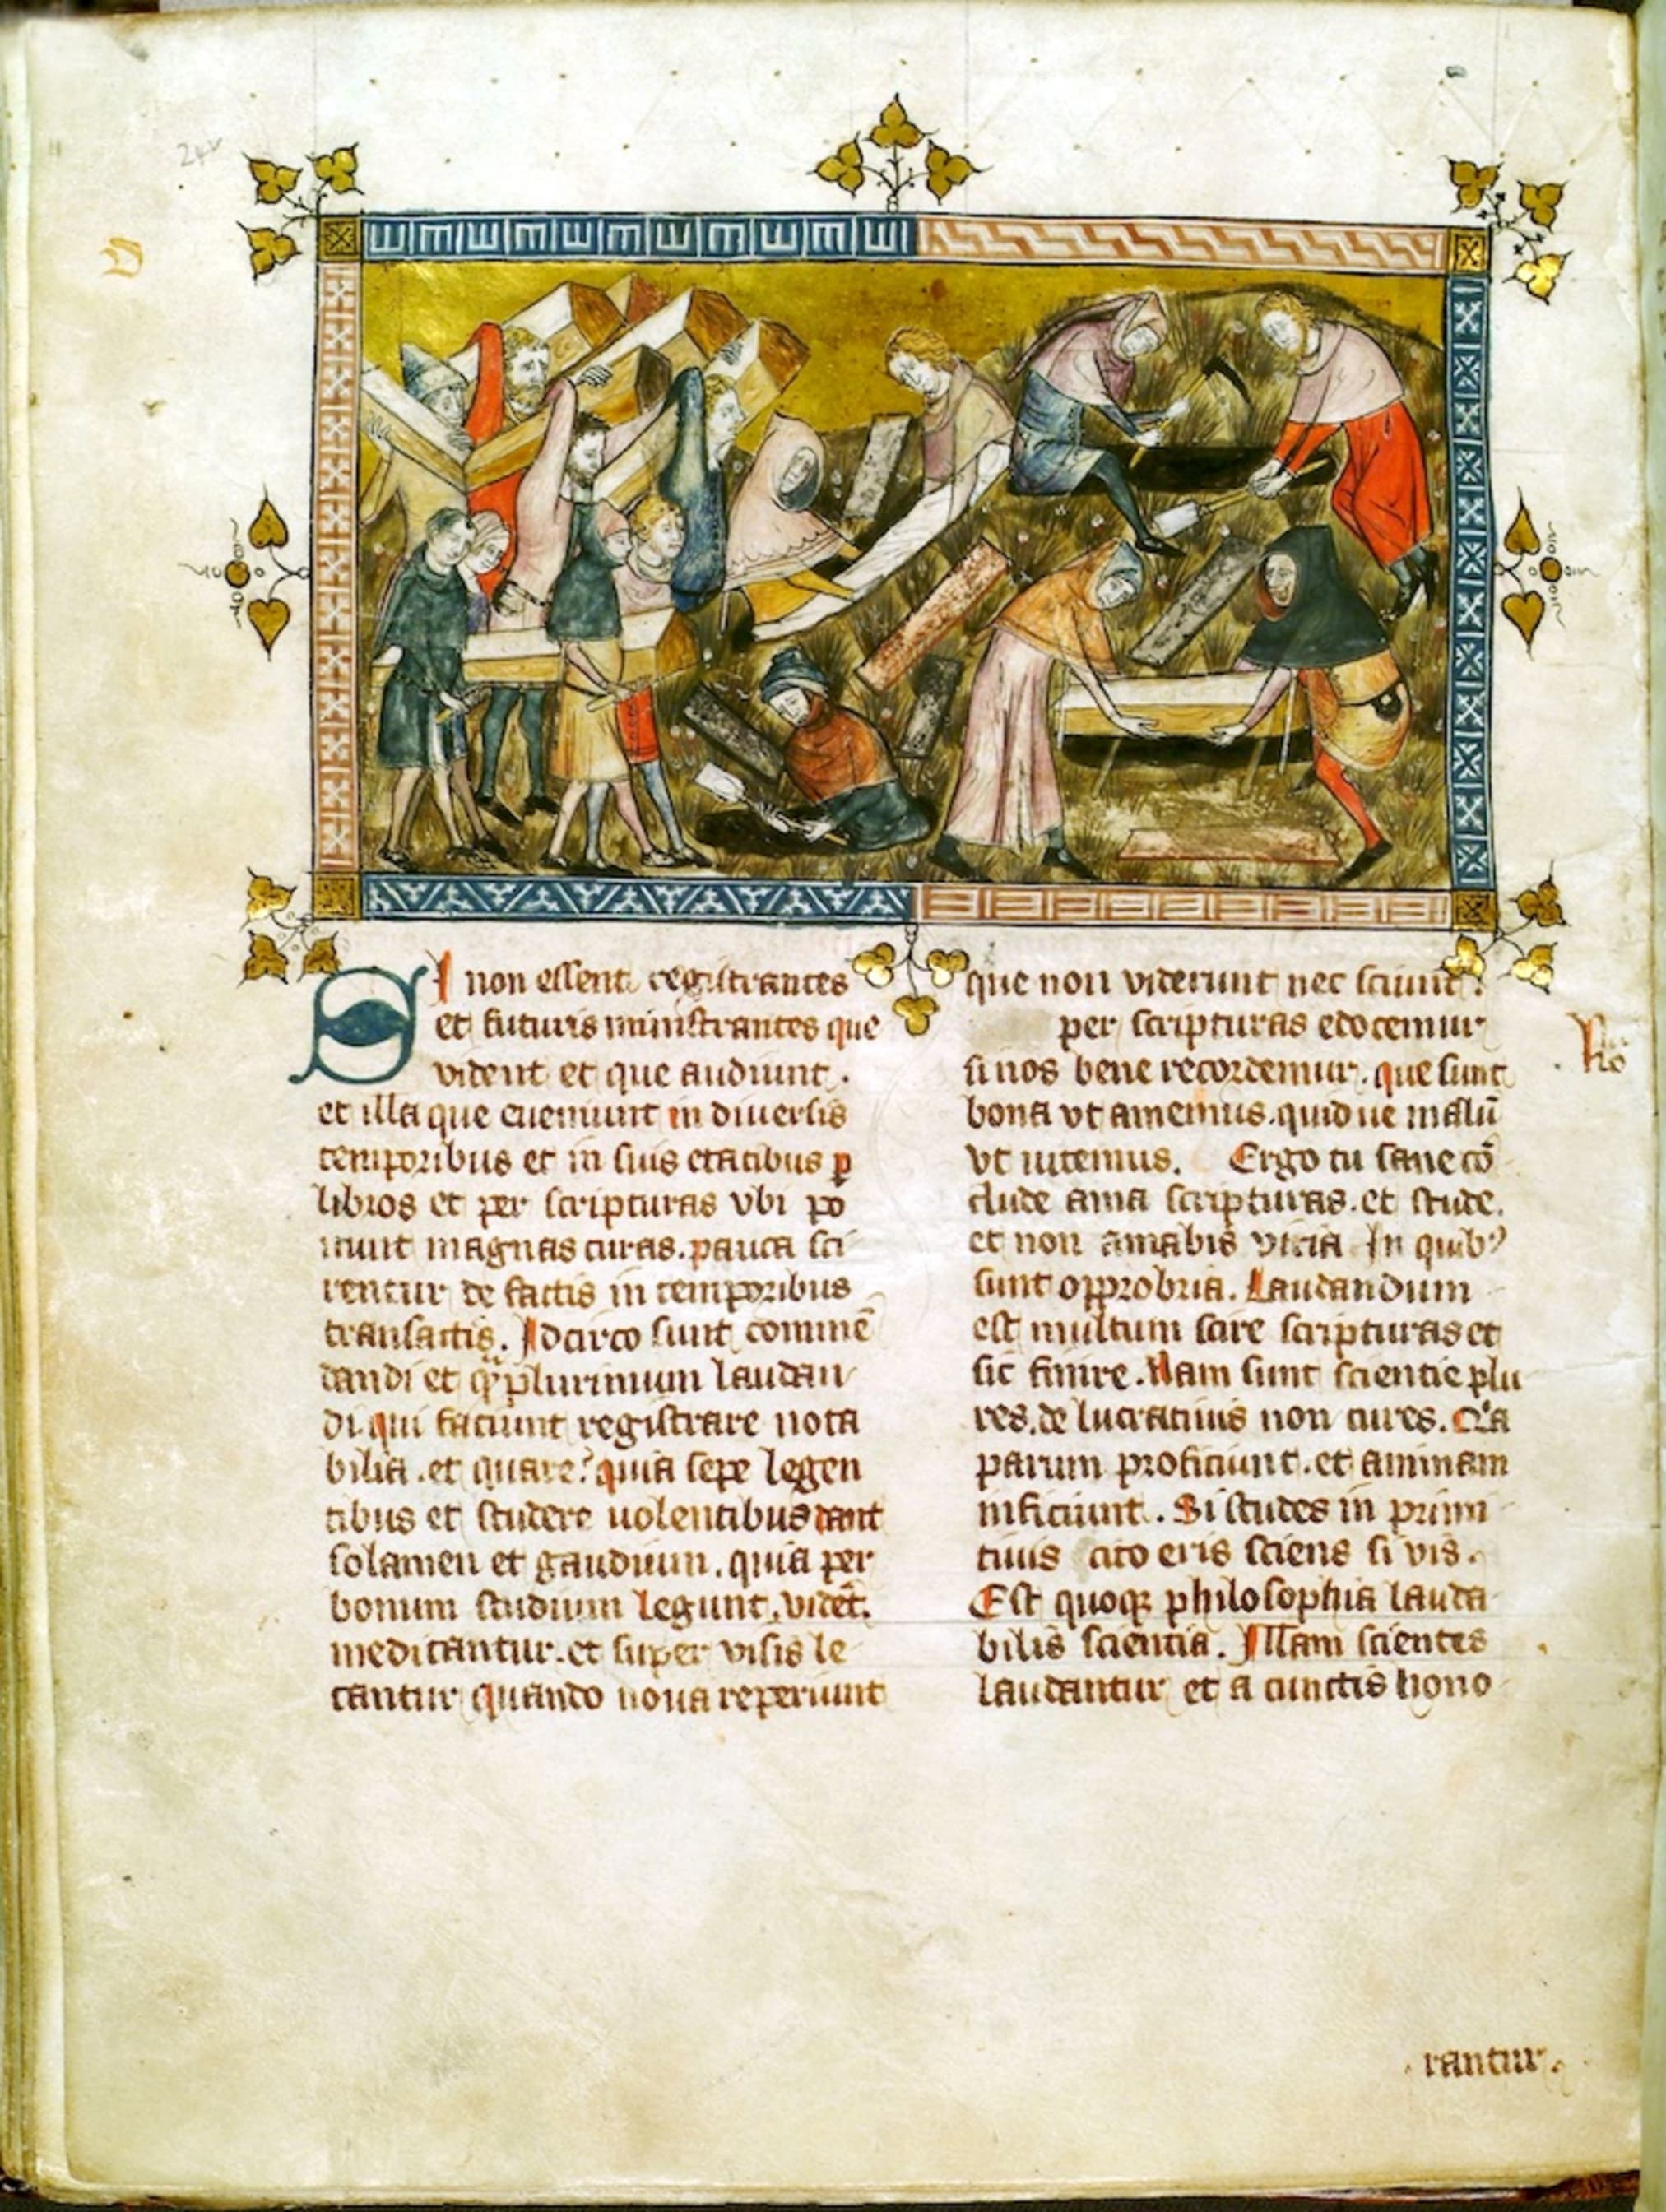 24v
SI non essent registrantes
et futuris ministrantes que
vident et que audiunt.
et illa que eueniunt in diuersis
temporibus et in suis etatibus p
libros et per scripturas vbi po
nunt magnas curas. pauca sci
rentur de factis in temporibus
transactis. Idcirco sunt commē
dandi et plurimum laudan
di qui faciunt registrare nota
bilia. et quare? quia sepe legen
tibus et studere uolentibus dant
solamen et gaudium. quia per
bonum studium legunt, vidēt.
meditantur. et super visis le
tantur quando noua reperiunt
que non viderunt nec sciunt.
per scripturas edocemur
si nos bene recordemur. que sunt
bona vt amemus. quid ue malū
vt uitemus. Ergo tu sane cō
clude ama scripturas. et stude.
et non amabis vicia In quib9
sunt opprobria. Laudandum
est multum scire scripturas et
sic finire. Nam sunt scientie plu
res. de lucratiuis non cures. Q'a
parum proficiunt. et animam
inficiunt. Si studes in primi
tiuis cito eris sciens si vis.
Est quoqȝ philosophia lauda
bilis scientia. Nam scientes
laudantur et a cunctis hono
rantur.